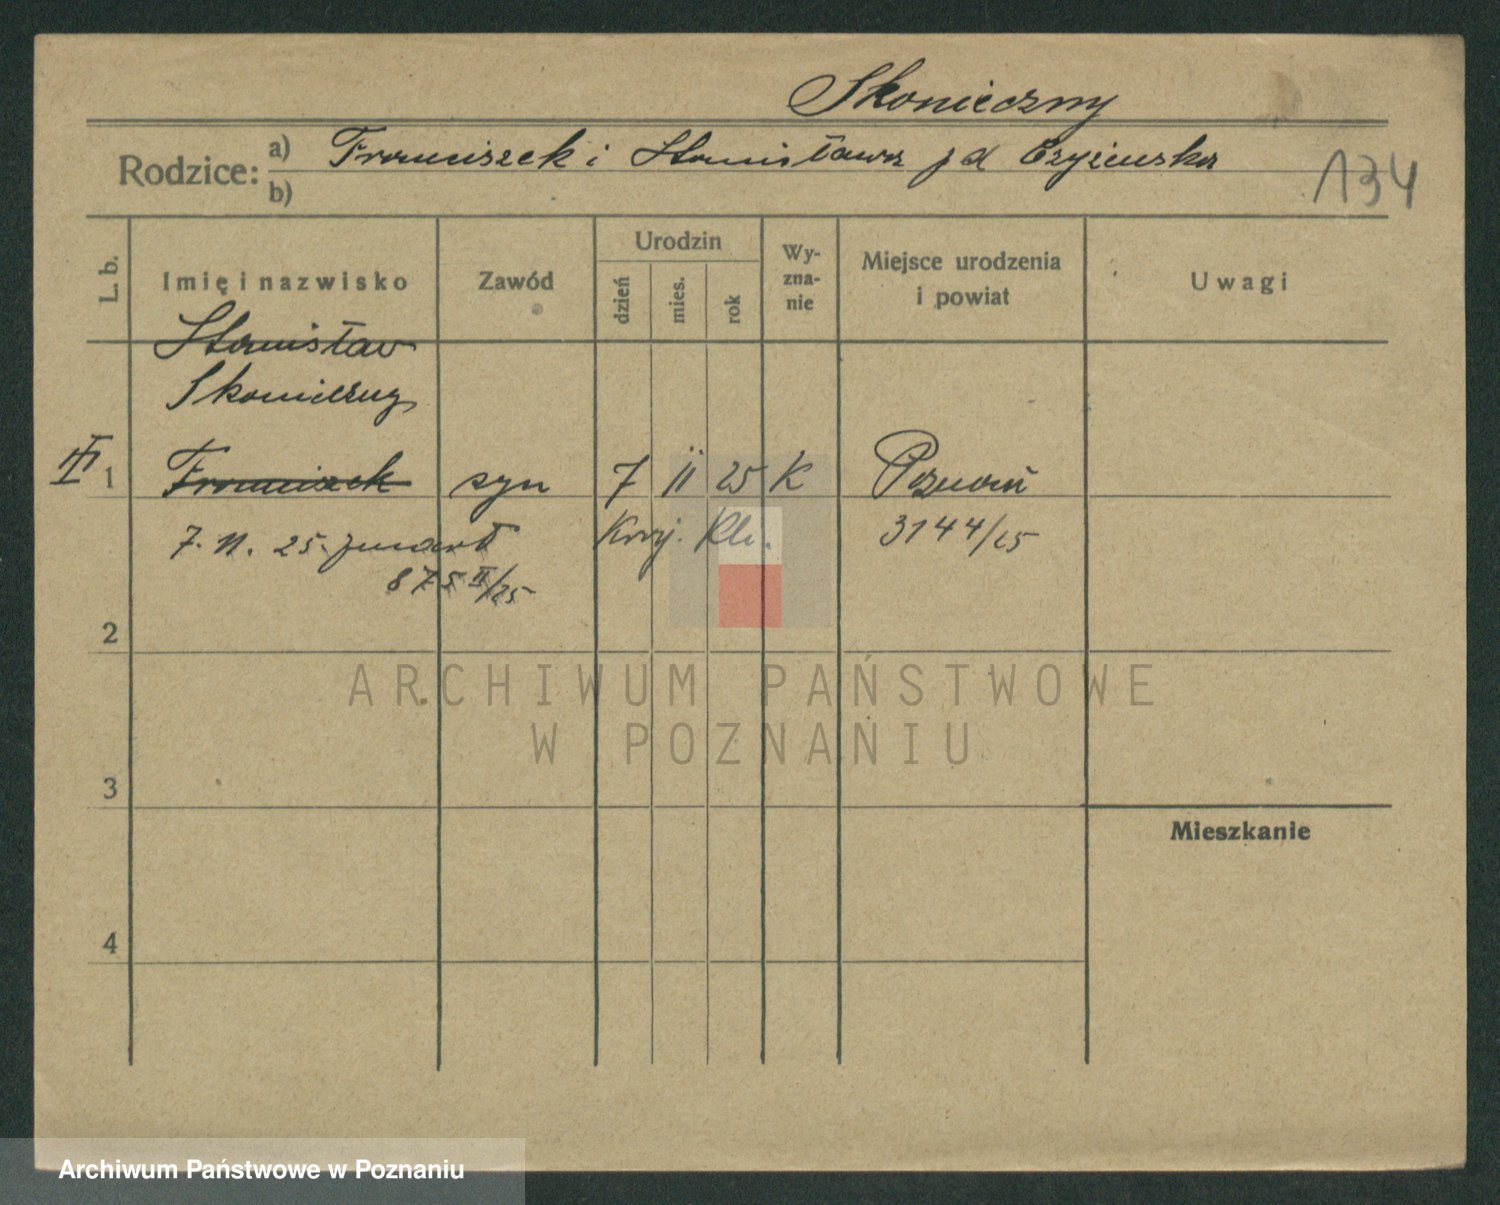 Skonieczny
Rodzice: a) Franciszek i Stanisława z d Czyżewska
b)
134
L. b.
Imię i nazwisko
Zawód
Urodzin
dzień
mies.
rok
Wy-
zna-
nie
Miejsce urodzenia
i powiat
Uwagi
Stanisław
Skonieczny
1 Franciszek syn 7 II 25 K Poznań
7. II. 25. zmarł 3144/25
875 II/25
2
ARCHIWUM PAŃSTWOWE
W POZNANIU
3
Mieszkanie
4
Archiwum Państwowe w Poznaniu